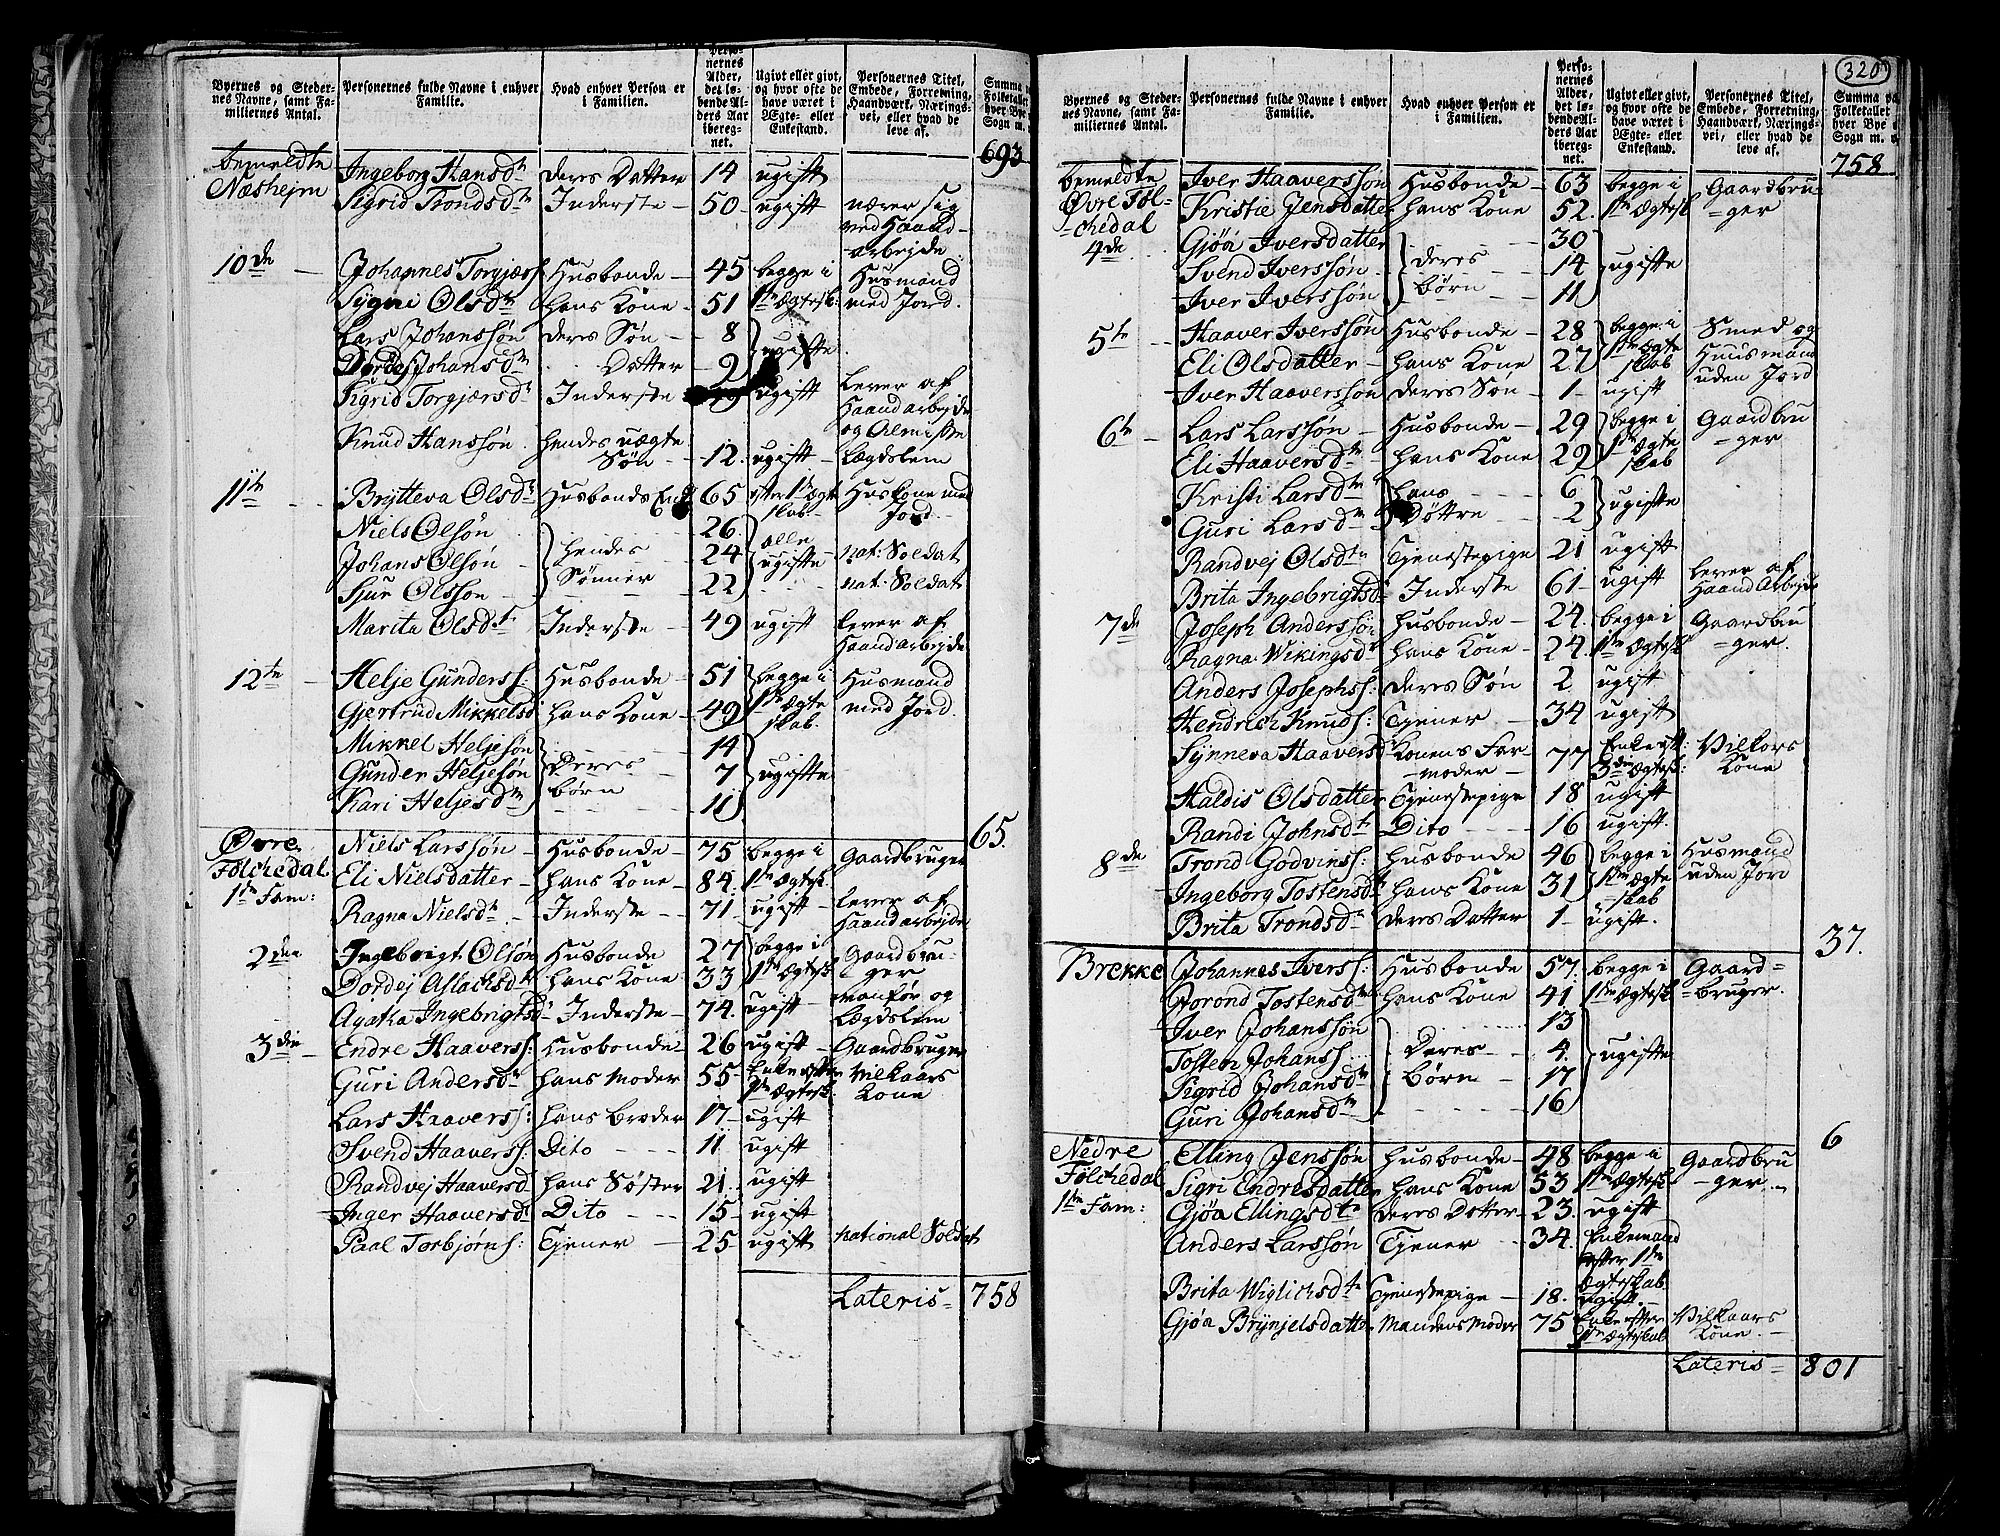 Byernes og Steder-nes Navne, samt Fa-miliernes Antal. | Personernes fulde Navne i enhver Familie. | Hvad enhver Person er i Familien. | Perso-nernes Alder, det lø-bende Al-ders Aar iberegnet. | Ugivt eller givt, og hvor ofte de have været i Ægte- eller Enkestand. | Personernes Titel, Embede, Forretning, Haandværk, Nærings-vei, eller hvad de leve af. | Summa Folketallet hver Bye Sogn m.
693
bemeldte Ingeborg Hansdtr deres Datter 14 ugift
Næshejm Sigrid Trondsdtr Inderste 50 ugift nærer sig
ved Haand-
arbejde
10de Johannes Torgjærs. Husbonde 45 begge i Husmand
Sygni Olsdtr hans Kone 51 1ste Ægtesk: med Jord.
Lars Johanssøn deres Søn 8
Dordej Johansdtr Datter 9 ugifte
Sigrid Torgjærsdtr Inderste ugift lever af
Haandarbejde
og Almisse
Knud Hanssøn hendes uægte
Søn 12 ugift Lægdslem
11te Brytteva Olsdtr Husbonds Enke 65 efter 1ste Ægte Huskone med
skab Jord
Niels Olsøn 26
Johans Olsøn hendes 24 alle ugifte nat: Soldat
Sjur Olsson Sønner 22 nat: Soldat
Marita Olsdtr Inderste 49 ugift lever af
Haandarbejde
12te Helje Gunders: Husbonde 51 begge i Husmand
Gjertrud Mikkelsd hans Kone 49 1ste Ægte med Jord.
skab.
Mikkel Heljesøn 14
Gunder Heljesøn Deres 7 ugifte
Kari Heljesdtr børn 11
65.
Øvre Niels Larssøn Husbonde 75 begge i Gaardbruger
Følchedal Eli Nielsdatter hans Kone 84 1ste Ægtesk.
1ste Fam: Ragna Nielsdtr Inderste 71 ugift lever af
Haandarbejde
2den Ingebrigt Olsøn Husbonde 27 begge i Gaardbru-
Dordej Aslachsdtr hans Kone 33 1ste Ægtesk. ger
Agatha Ingebrigtsd Inderste 74. ugift vanfør og
Lægdslem
3die Endre Haaverss: Husbonde 26 ugift Gaardbruger
Guri Andersdtr hans Moder 55 Enke efter Vilkaars
1ste Ægtesk. Kone
Lars Haaverss: hans Broder 17 ugift
Svend Haaverss: Dito 11 ugift
Randvej Haaversd hans Søster 21 ugift
Inger Haaversdtr Dito 15 ugift
Paal Torbjørns: Tjener 25 ugift national Soldat
Lateris 758
320
Byernes og Steder-nes Navne, samt Fa-miliernes Antal. | Personernes fulde Navne i enhver Familie. | Hvad enhver Person er i Familien. | Perso-nernes Alder, det lø-bende Al-ders Aar iberegnet. | Ugivt eller givt, og hvor ofte de have været i Ægte- eller Enkestand. | Personernes Titel, Embede, Forretning, Haandværk, Nærings-vei, eller hvad de leve af. | Summa Folketallet hver Bye Sogn m.
758
bemeldte Iver Haaverssøn Husbonde 63 begge i Gaardbru-
Øvre Føl- Kristie Jensdatter hans Kone 52. 1ste Ægtesk =ger
=chedal Gjøa Iversdatter 30
4de Svend Iverssøn deres 14 ugifte
Iver Iverssøn børn 11
5te Haaver Iverssøn Husbonde 28 begge i Smed og
Eli Olsdatter hans Kone 27 1ste Ægte Huusmand
skab uden Jord
Iver Haaverssøn deres Søn 1 ugift
6te Lars Larssøn Husbonde 29 begge i Gaardbru
Eli Haaversdtr hans Kone 29 1ste Ægte =ger
skab
Kristi Larsdtr hans 6
Guri Larsdtr Døttre 2 ugifte
Randvej Olsdtr Tjenestepige 21 ugift
Brita Ingebrigtsd: Inderste 61 ugift lever af
Haand Arbejde
7de Joseph Anderssøn Husbonde 24. begge i Gaardbru
Ragna Wikingsdtr hans Kone 24. 1ste Ægtesk =ger.
Anders Josephss: deres Søn 2 ugift
Hendrich Knuds: Tjener 34 ugift
Synneva Haaversd Konens Far- 77 Enke eft: Vilkors
=moder 3die Ægtesk: Kone
Haldis Olsdatter Tjenestepige 18 ugift
Randi Johnsdtr Dito 16 ugift.
8de Trond Godvinss: Husbonde 46 begge i Husmand
Ingeborg Tostensdtr hans Kone 31 1ste Ægte uden Jord
skab
Brita Trondsdtr deres Datter 1 ugift.
37.
Brekke Johannes Iverss: Husbonde 57. begge i Gaard=
Gorond Tostensdtr hans Kone 41 1ste Ægtesk =bruger.
Iver Johanssøn 13
Tosten Johanss. Deres 4. ugifte
Sigrid Johansdtr børn 17
Guri Johansdtr 16
6
Nedre Elling Jenssøn Husbonde 48 begge i Gaardbru
Følchedal Sigri Endresdatter hans Kone 53 1ste Ægtesk =ger
1ste Fam: Gjøa Ellingsdtr deres Datter 23. ugift
Anders Larssøn Tjener 34. Enkemand
efter 1ste
Ægteskab
Brita Wiglichsdtr Tjenestepige 18. ugift.
Gjøa Brynjelsdatter Mandens Moder 75 Enke efter Vilkaars
1ste Ægteskab Kone
Lateris = 801